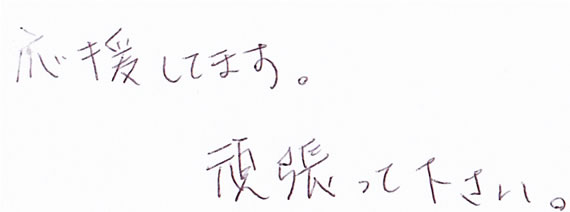 応援してます。
頑張って下さい。